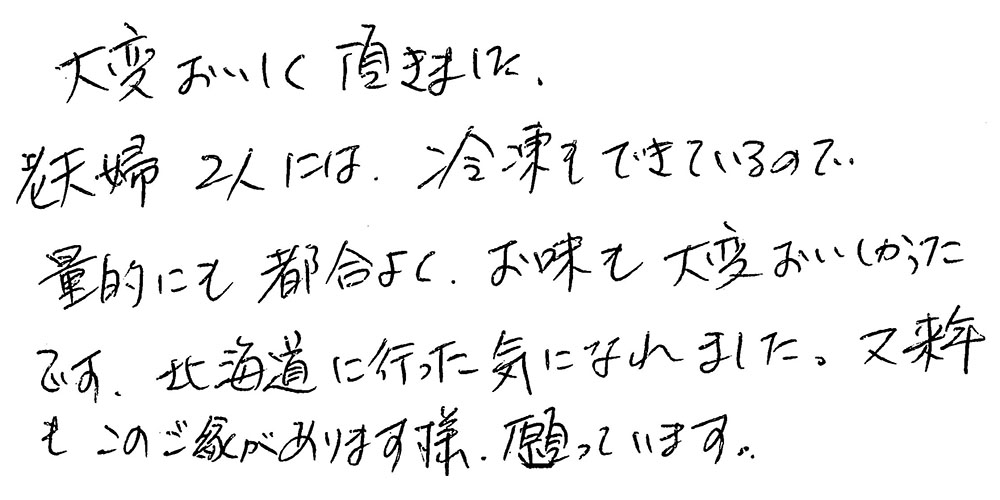 大変おいしく頂きました、
老夫婦 2人には、冷凍もできているので、
量的にも都合よく、お味も大変おいしかった
です、北海道に行った気になれました。又来年
もこのご縁があります様、願っています。